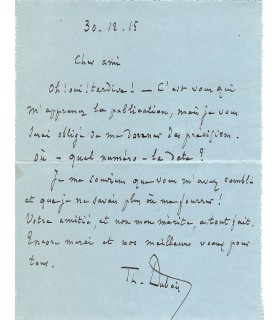 30-12-15
Cher ami
Oh! oui! tardive! — C'est vous qui
m'apprenez la publication, mais je vous
serai obligé de me donner des précisions.
Où - quel numéro - la date?
Je me souviens que vous m'avez comblé
et que je ne savais plus où me fourrer!
Votre amitié, et non mon mérite, a tout fait.
Encore merci et nos meilleurs vœux pour
tous.
Th. Dubois